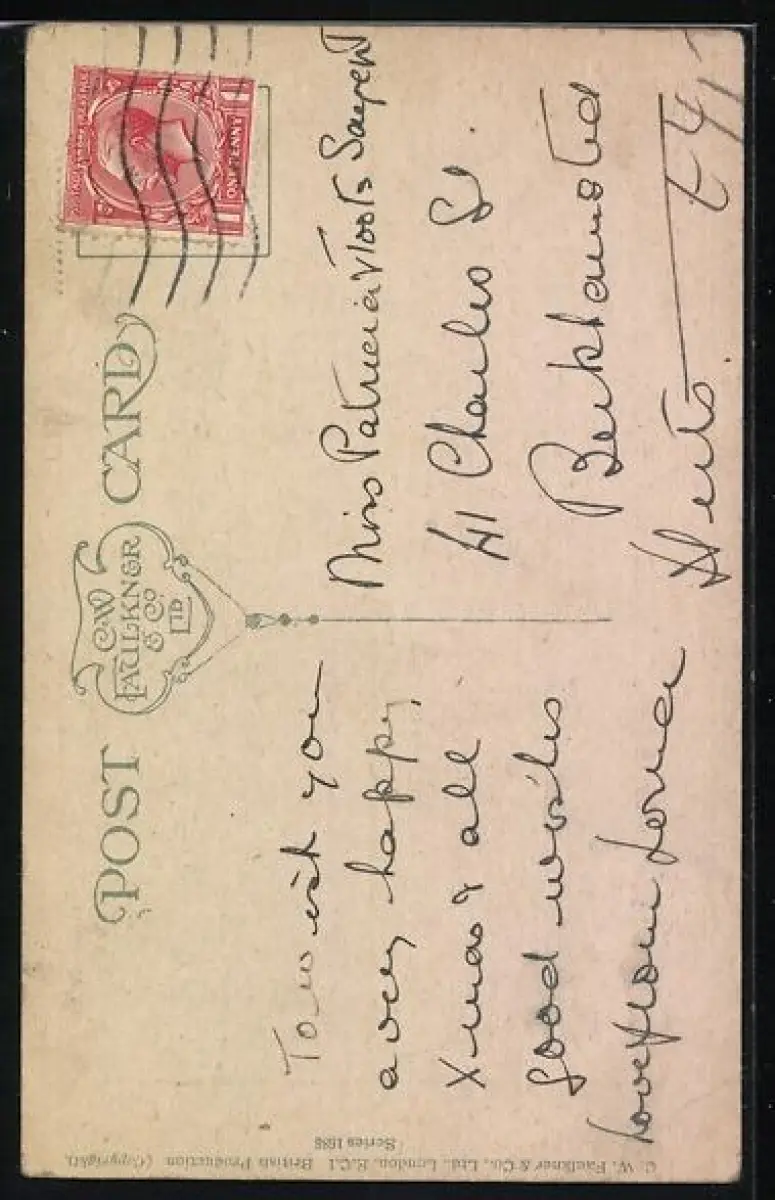 POST CARD
C.W. FAULKNER & CO. LTD
POSTAGE REVENUE
ONE PENNY
To wish you
a very happy
Xmas & all
good wishes
love from Lorna
Miss Patricia & Toots Sargent
41 Charles St.
Berkhamsted
Herts.
C. W. Faulkner & Co., Ltd., London, E.C.1 British Production (Copyright).
Series 1688